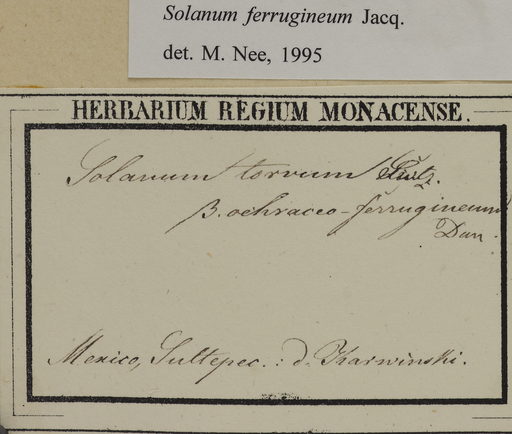 Solanum ferrugineum Jacq.
det. M. Nee, 1995
HERBARIUM REGIUM MONACENSE.
Solanum torvum
β. ochraceo-ferrugineum
Dun.
Mexico, Sultepec. : d. Karwinski.